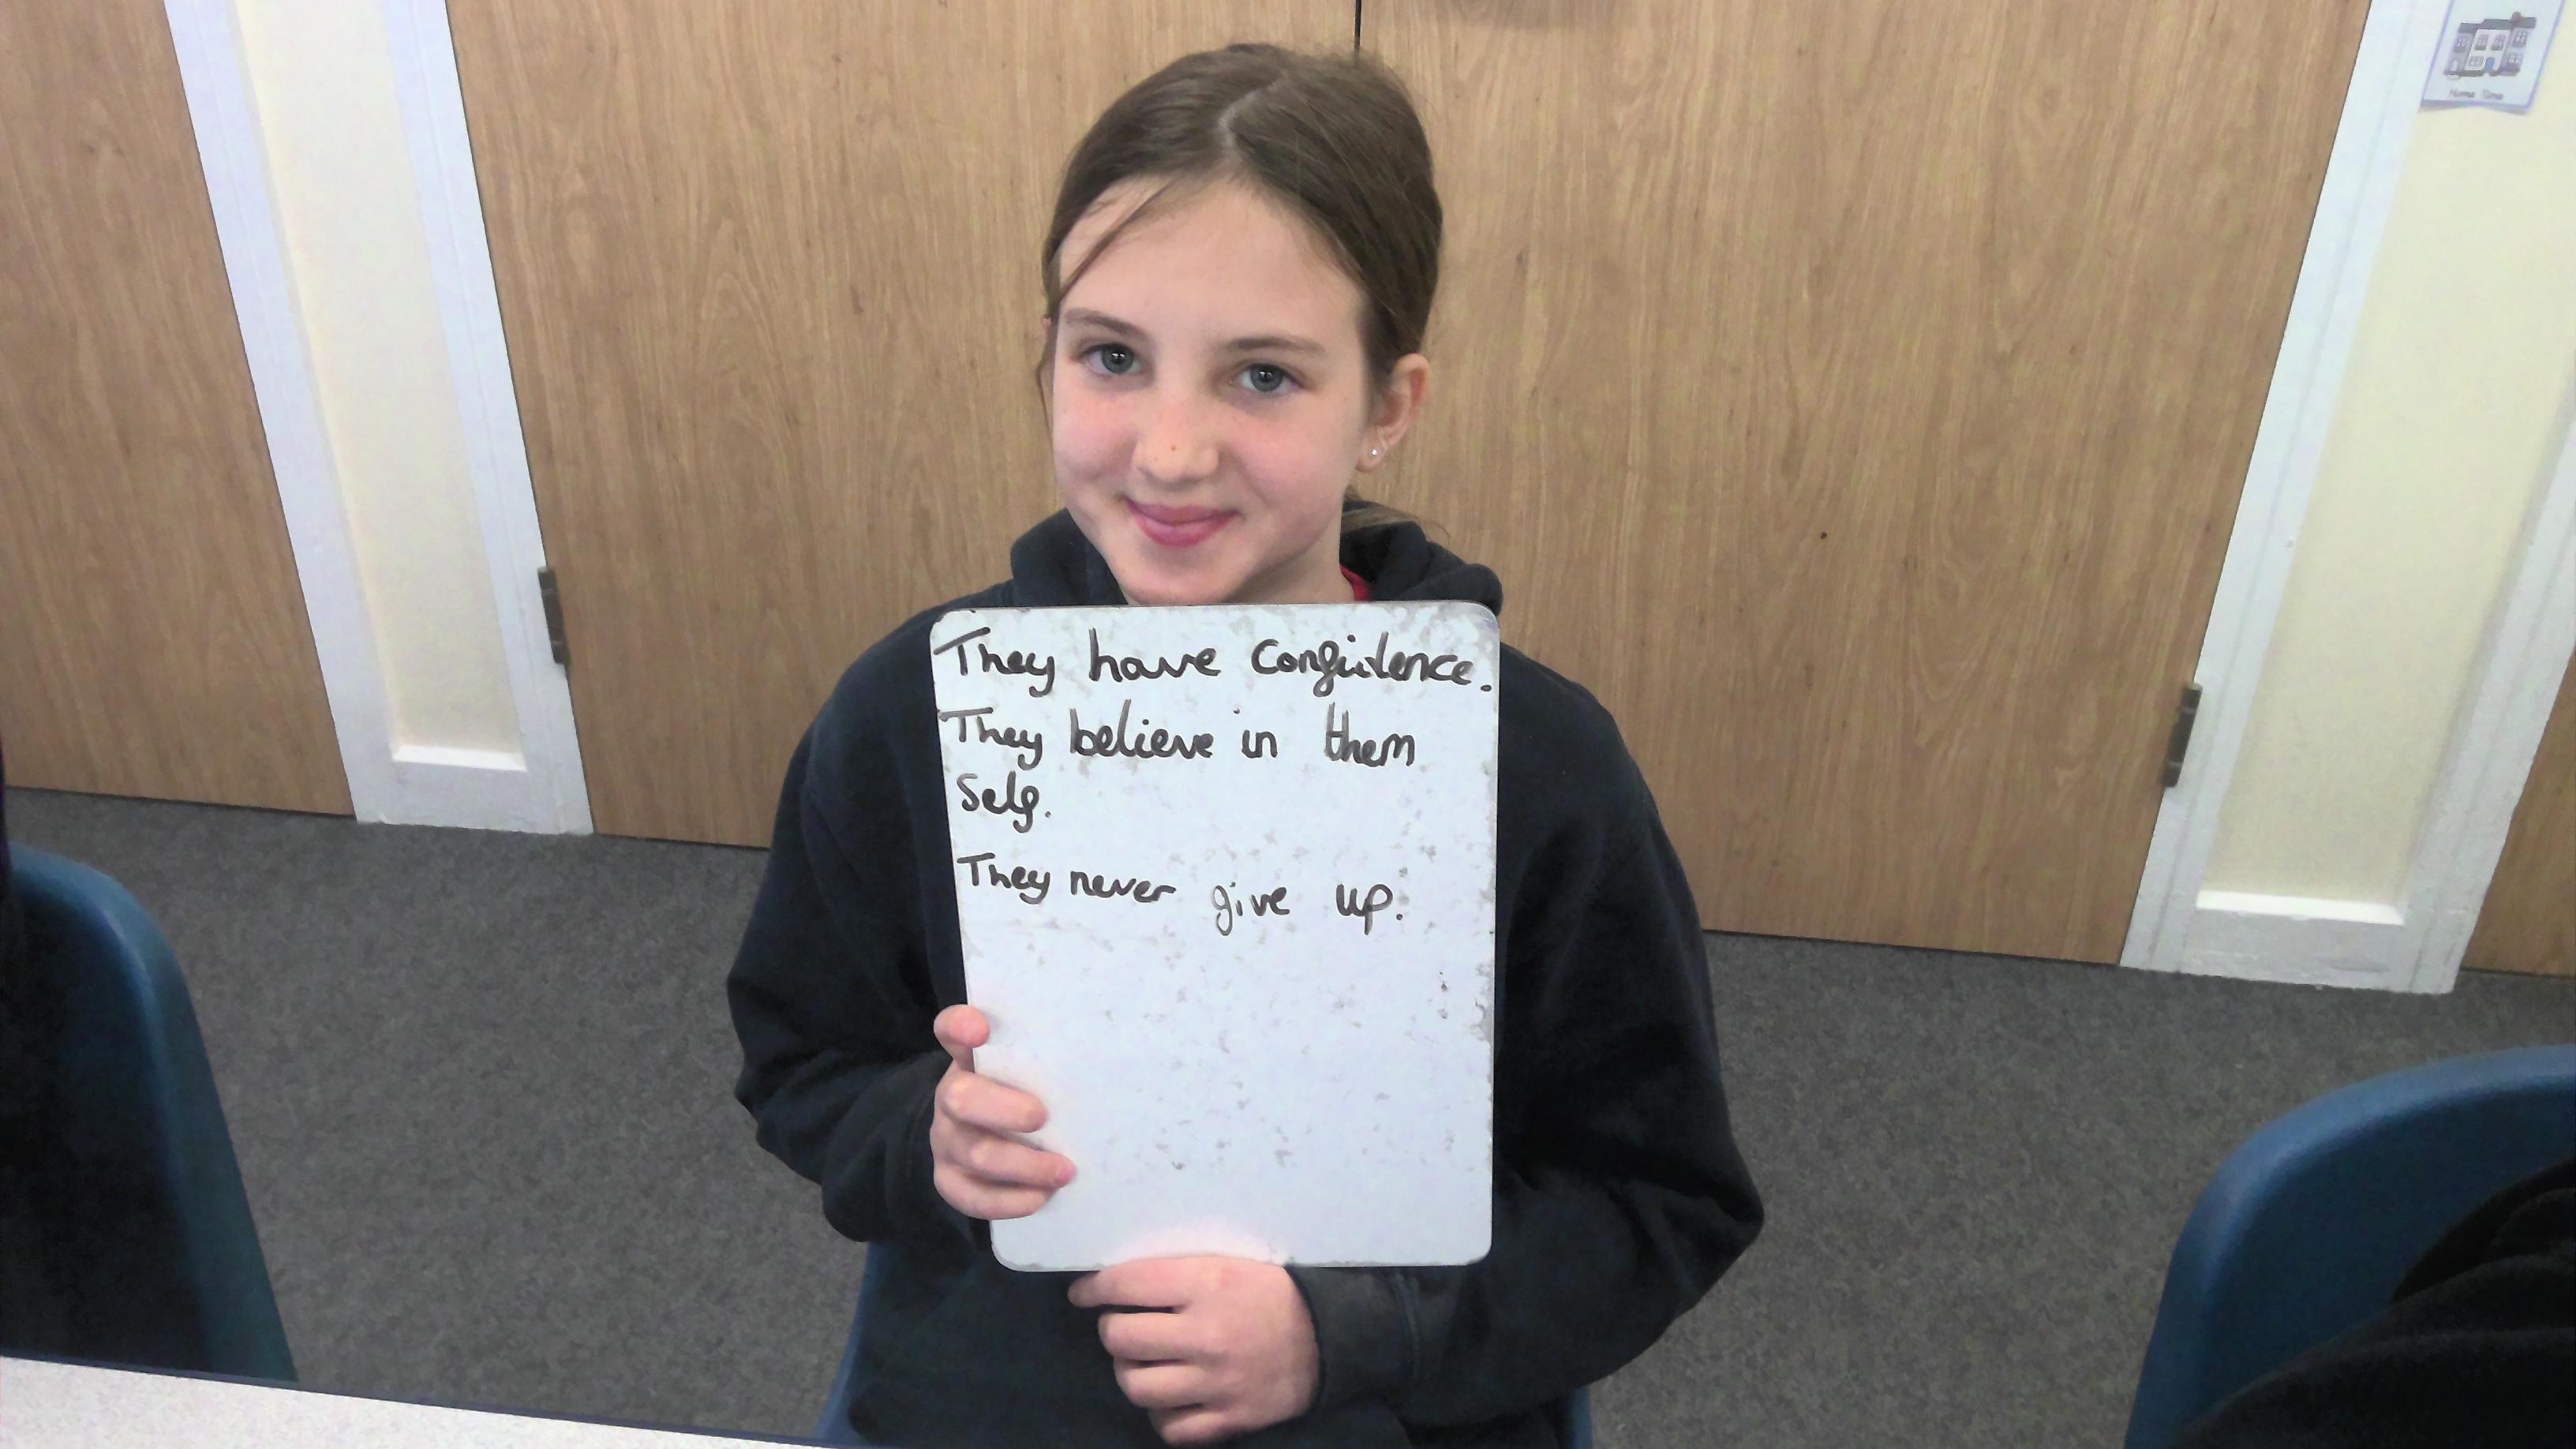 They have confidence.
They believe in them
self.
They never give up.
Home Time